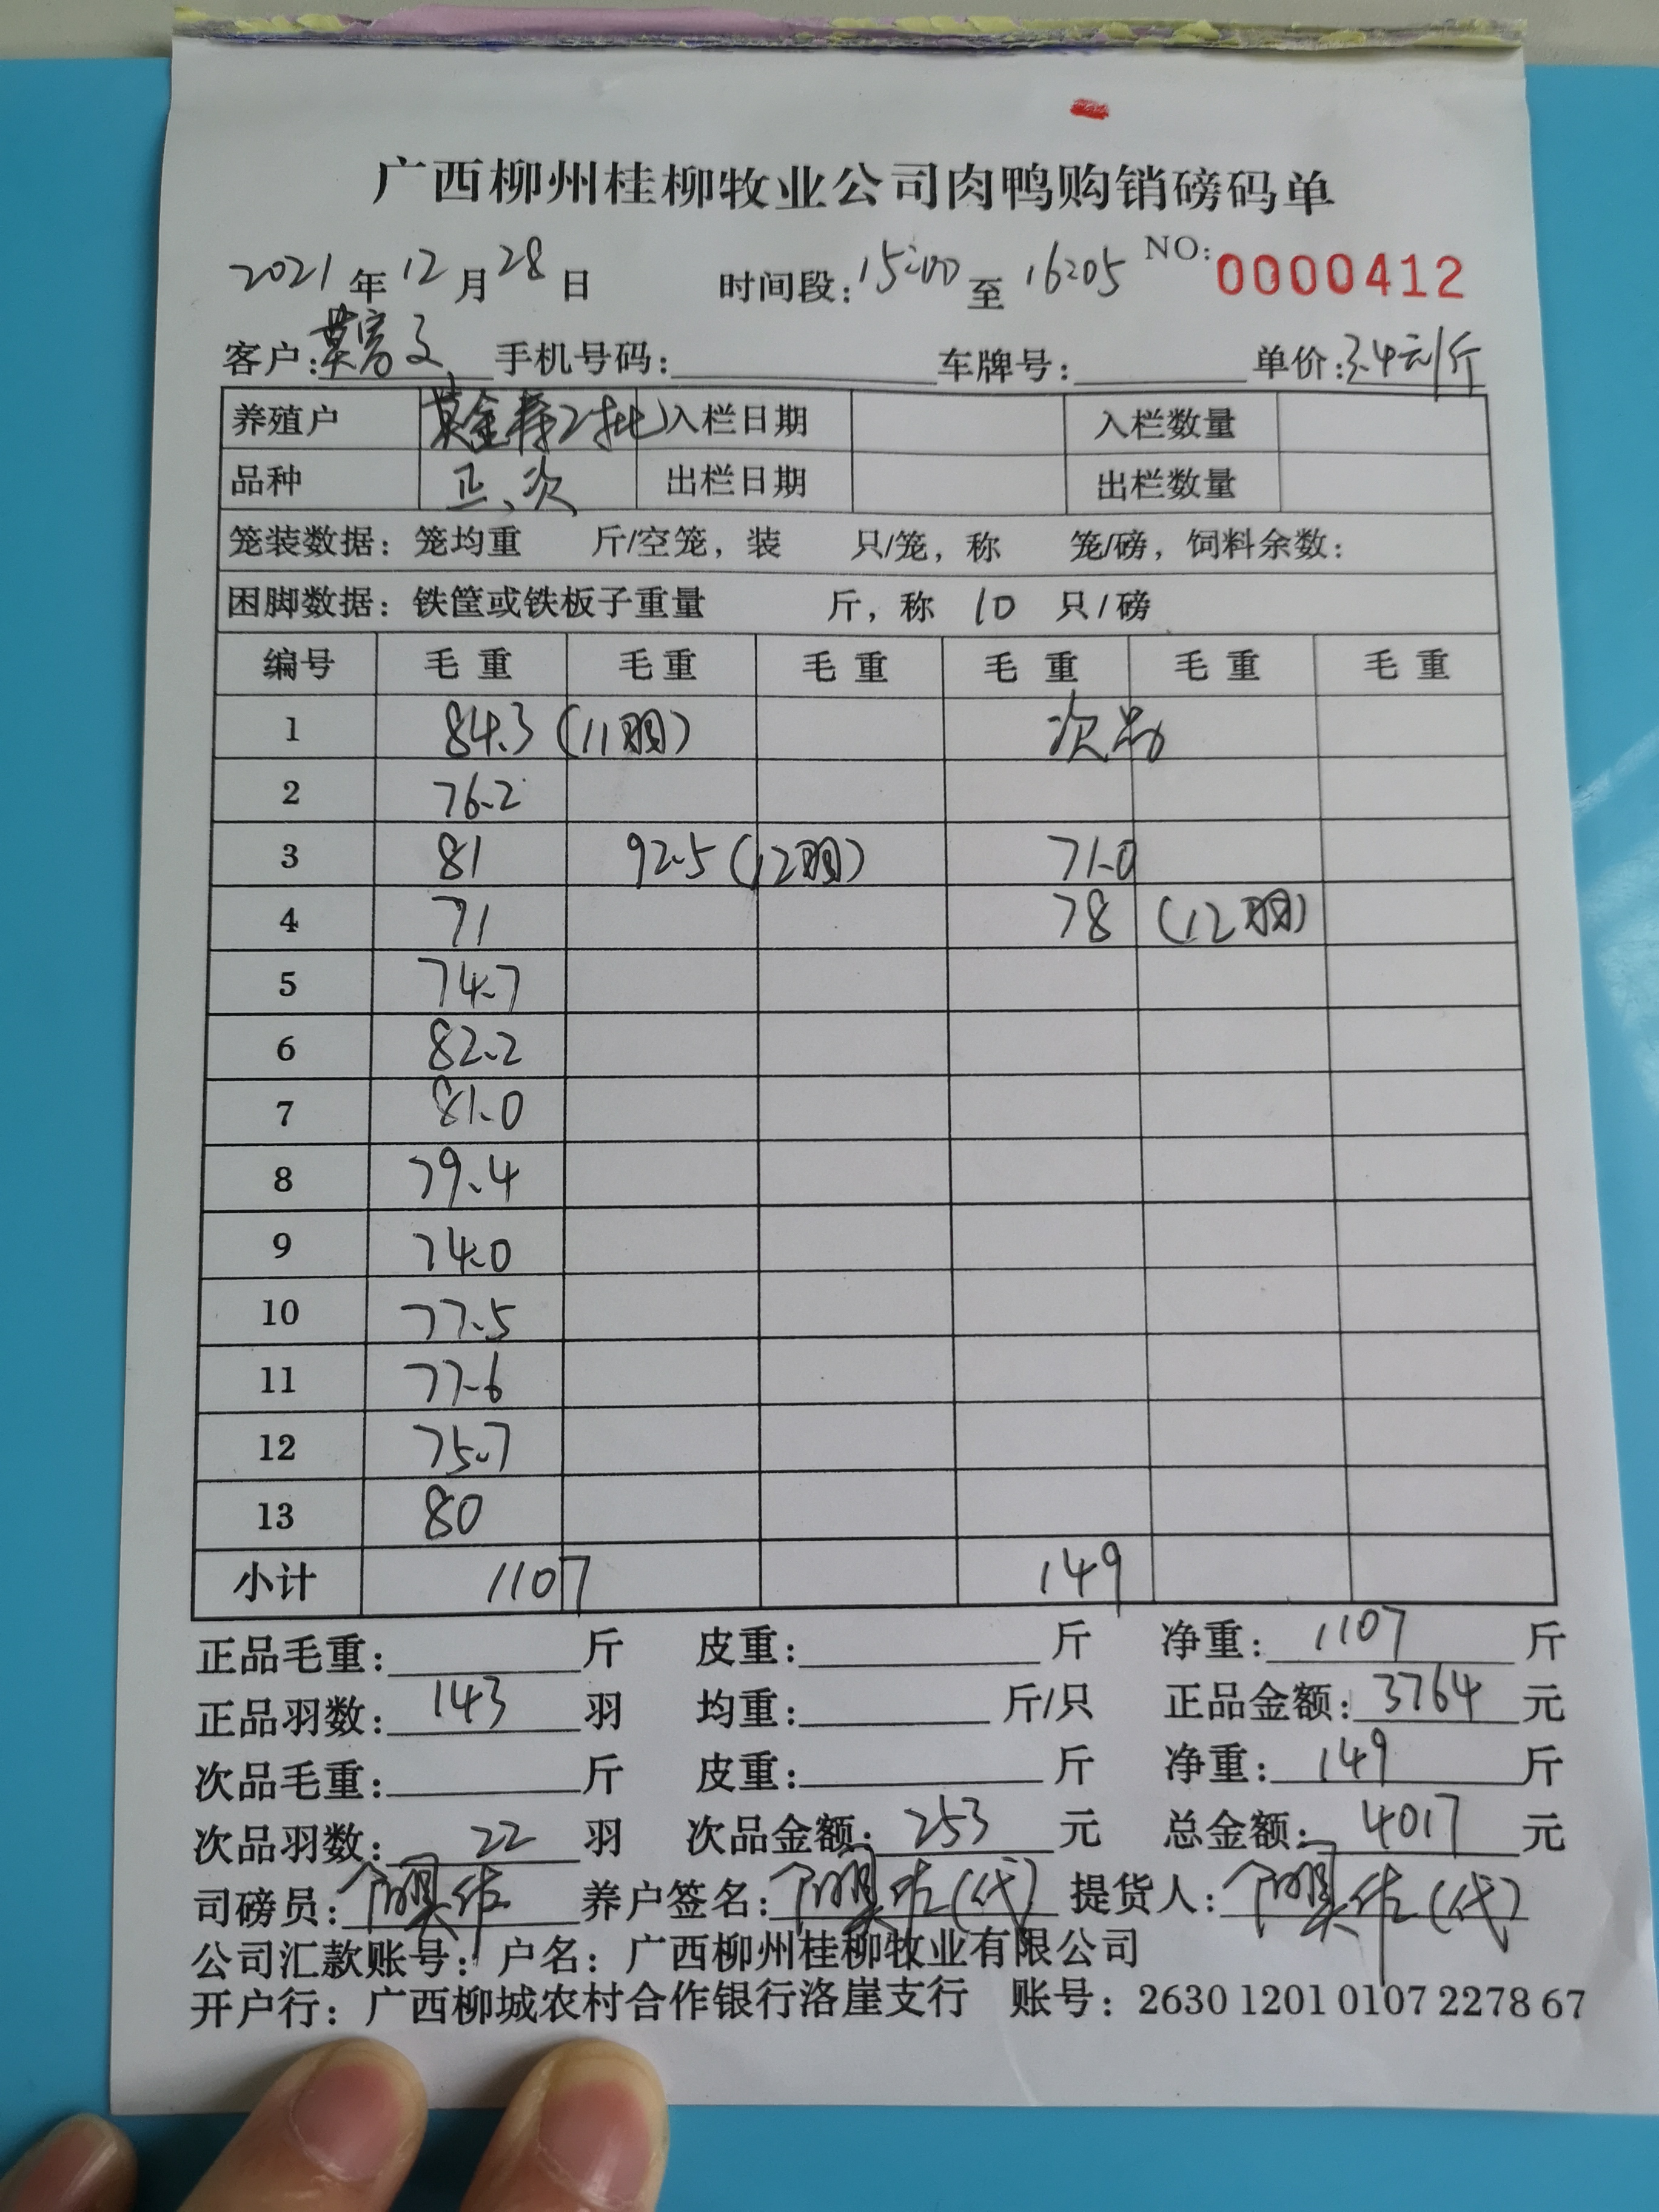 广西柳州桂柳牧业公司肉鸭购销磅码单
2021年12月28日 时间段:15:00至16:05 NO:0000412
客户:莫富文 手机号码: 车牌号: 单价:3.4元/斤
养殖户 莫金寿2批 入栏日期 入栏数量
品种 正、次 出栏日期 出栏数量
笼装数据:笼均重 斤/空笼,装 只/笼,称 笼/磅,饲料余数:
困脚数据:铁筐或铁板子重量 斤,称 10 只/磅
编号 毛重 毛重 毛重 毛重 毛重 毛重
1 84.3 (11羽) 次品
2 76.2
3 81 92.5 (12羽) 71.0
4 71 78 (12羽)
5 74.7
6 82.2
7 81.0
8 79.4
9 74.0
10 77.5
11 77.6
12 75.7
13 80
小计 1107 149
正品毛重: 斤 皮重: 斤 净重:1107斤
正品羽数:143羽 均重: 斤/只 正品金额:3764元
次品毛重: 斤 皮重: 斤 净重:149斤
次品羽数:22羽 次品金额:253元 总金额:4017元
司磅员: 养户签名:(代) 提货人:(代)
公司汇款账号:户名:广西柳州桂柳牧业有限公司
开户行:广西柳城农村合作银行洛崖支行 账号:2630 1201 0107 2278 67